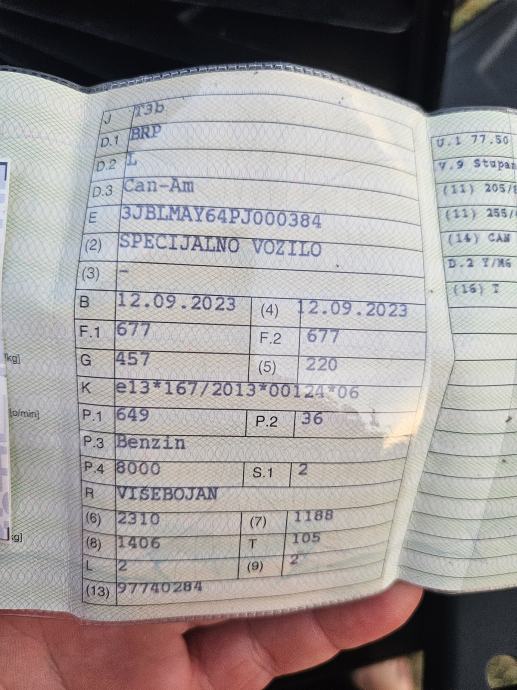 J T3b
D.1 BRP
D.2 L
D.3 Can-Am
E 3JBLMAY64PJ000384
(2) SPECIJALNO VOZILO
(3) -
B 12.09.2023 (4) 12.09.2023
F.1 677 F.2 677
G 457 (5) 220
K e13*167/2013*00124*06
P.1 649 P.2 36
P.3 Benzin
P.4 8000 S.1 2
R VIŠEBOJAN
(6) 2310 (7) 1188
(8) 1406 T 105
L 2 (9) 2
(13) 97740284
U.1 77.50
V.9 Stupan
(11) 205/8
(11) 255/
(14) CAN
D.2 Y/M6
(16) T
kg]
[o/min]
g]